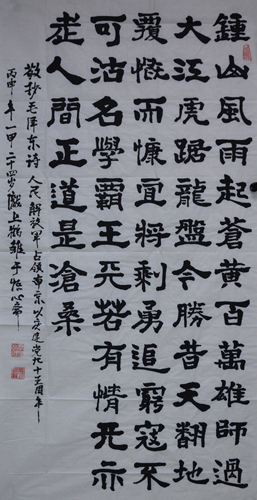 鍾山風雨起蒼黃百萬雄師過
大江虎踞龍盤今勝昔天翻地
覆慨而慷宜將剩勇追窮寇不
可沽名學霸王天若有情天亦
老人間正道是滄桑
敬抄毛泽东诗人民解放军占领南京以庆建党九十五周年
丙申年一甲二十四岁